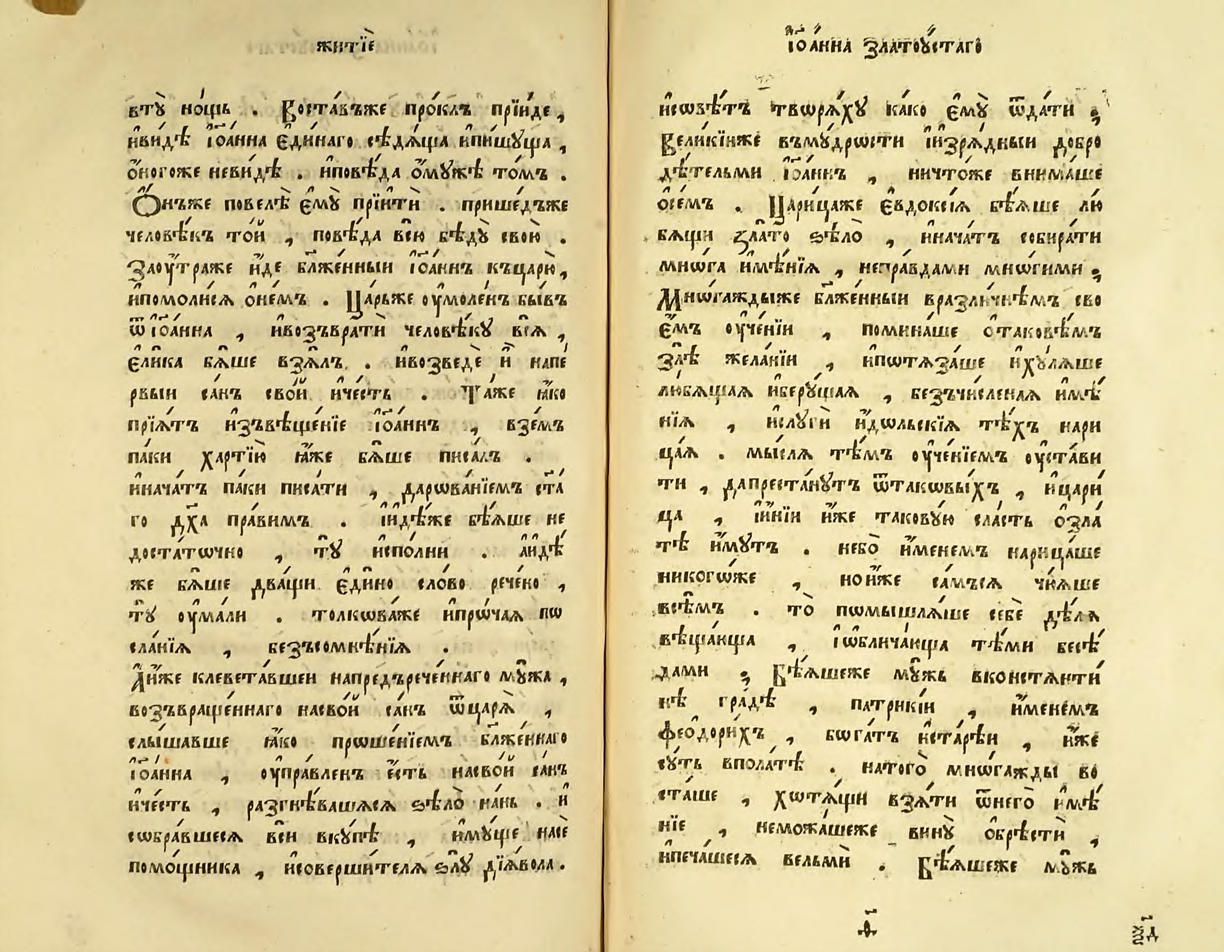 житїѐ
втꙋ̀ но́щь . Воста́въже про́клъ прїи́де ,
и҆ви́дѣ і҆ѡа́нна є҆ди́наго сѣдѧ́ща и҆пи́шꙋща ,
ѻ҆́ногоже неви́дѣ . и҆повѣ́да ѡ҆мꙋ́жѣ то́мъ .
Ѻ҆́нъже повелѣ̀ є҆мꙋ̀ прїитѝ . прише́дъже
человѣ́къ то́й , повѣ́да всю̀ бѣдꙋ̀ свою̀ .
Заоу҆́траже и҆́де бл҃же́нныи і҆ѡа́ннъ къцарю̀ ,
и҆помоли́сѧ ѡ҆не́мъ . Ца́рьже оу҆моле́нъ бы́въ
ѿі҆ѡа́нна , и҆возъвратѝ человѣ́кꙋ всѧ̀ ,
є҆ли́ка бѧ́ше взѧ́лъ . и҆возведѐ и҆̀ напе́
рвыи са́нъ сво́й и҆че́сть . Та́же ꙗ҆́ко
прїѧ́тъ и҆звѣще́нїе і҆ѡа́ннъ , взе́мъ
па́ки ха́ртїю ꙗ҆́же бѧ́ше писа́лъ .
и҆нача́тъ па́ки писа́ти , дарова́нїемъ ст҃а́
го дх҃а пра́вимъ . и҆и҆дѣ́же бѣ́ѧше не
доста́точно , тꙋ̀ и҆спо́лни . а҆и҆дѣ́
же бѧ́ше два́щи є҆ди́но сло́во рече́но ,
тꙋ̀ оу҆ма́ли . толкова́же и҆про́чаѧ пѡ
сла́нїѧ , безъсомнѣ́нїѧ .
А҆и҆́же клевета́вшеи напредърече́ннаго мꙋ́жа ,
возъвраще́ннаго насво́й са́нъ ѿцарѧ̀ ,
слы́шавше ꙗ҆́ко прѡше́нїемъ бл҃же́ннаго
і҆ѡа́нна , оу҆пра́вленъ є҆́сть насво́й са́нъ
и҆че́сть , разгнѣ́вашасѧ ѕѣлѡ̀ на́нь . и҆
сѡбра́вшесѧ всѝ вкꙋ́пѣ , и҆мꙋ́ще насѐ
помо́щника , и҆соверши́телѧ ѕлꙋ̀ дїѧ́вола .
і҆ѡа́нна златоꙋ́стагѡ
и҆совѣ́тъ творѧ́хꙋ ка́ко є҆мꙋ̀ ѿда́ти ;
Вели́кїиже въмꙋ́дрости і҆и҆зрѧ́дныи добро
дѣ́тельми і҆ѡа́ннъ , ничто́же внима́ше
ѡ҆се́мъ . Цари́цаже є҆вдоксі́ѧ бѣ́ѧше лю́
бѧщи зла́то ѕѣлѡ̀ , и҆нача́тъ собира́ти
мнѡ́га и҆мѣ́нїѧ , непра́вдами мнѡ́гими ;
Мнѡ́гаждыже бл҃же́нныи вразли́чнѣмъ сво
є҆́мъ оу҆че́нїи , помина́ше ѡ҆тако́вѣмъ
злѣ̀ жела́нїи , и҆пѡтѧза́ше и҆хꙋлѧ́ше
лю́бѧщаѧ и҆берꙋ́щаѧ , безъчи́сленаѧ и҆мѣ́
нїѧ , и҆слꙋгѝ и҆́дѡльскїѧ тѣ́хъ нари
ца́ѧ . мы́слѧ тѣ́мъ оу҆че́нїемъ оу҆ста́ви
ти , дапреста́нꙋтъ ѿтаковы́хъ , и҆цари́
ца , і҆и҆ні́и и҆́же такову́ю сла́сть ѡ҆зла́
тѣ и҆́мꙋтъ . небо̀ и҆́менемъ нарица́ше
никого́же , нои҆́же са́мъсѧ чи́ѧше
всѣ́мъ . то̀ помышлѧ́ше себѐ дѣ́лѧ
вѣща́юща , і҆ѡблича́юща тѣ́ми бесѣ́
дами ; Бѣ́ѧшеже мꙋ́жь вконстѧнти́
нѣ гра́дѣ , патри́кїи , и҆́менемъ
феодори́хъ , бѡга́тъ и҆ста́рѣи , и҆́же
сꙋ́ть впола́тѣ . на́того мнѡ́гажды во
ста́ше , хѡтѧ́щи взѧ́ти ѿнегѡ̀ и҆мѣ́
нїе , немо́жашеже винꙋ̀ ѡ҆брѣ́сти ,
и҆печа́шесѧ вельмѝ . Бѣ́ѧшеже мꙋ́жь